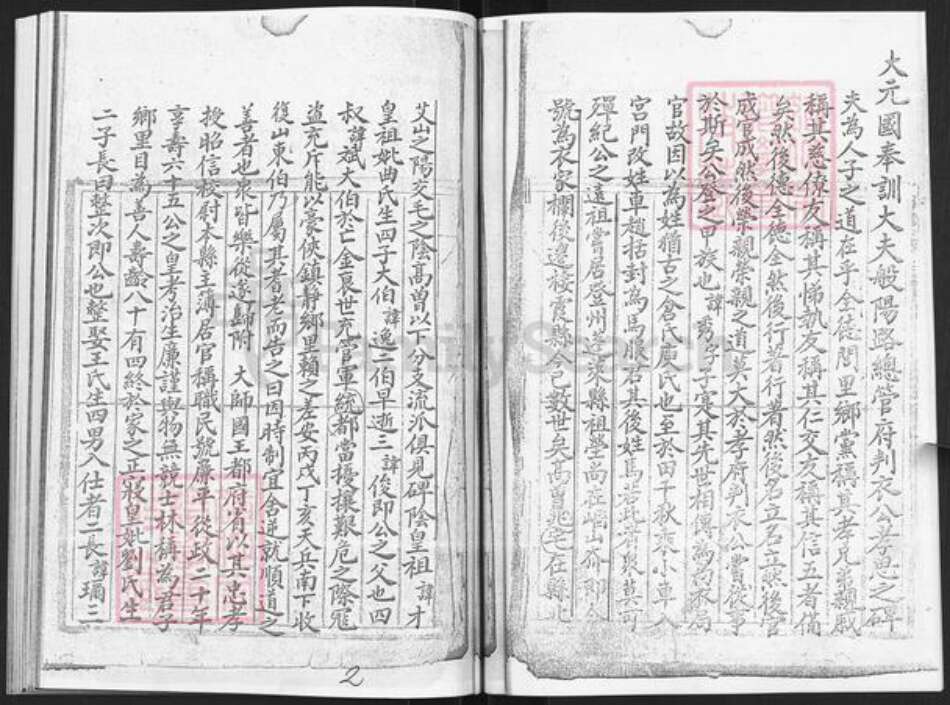 大元國奉訓大夫般陽路總管府判衣公孝思之碑
夫為人子之道在乎全徒閭里鄉黨稱其孝兄弟親戚
稱其慈僚友稱其悌執友稱其仁交友稱其信五者備
矣然後德全德全然後行著行著然後名立名立然後官
成官成然後榮親榮親之道莫大於孝府判衣公實從事
於斯矣公登之甲族也諱 子子寔其先世相傳為 衣局
官故因以為姓猶古之倉氏庾氏也至於田千秋乘小車入
宮門改姓車趙括封為馬服君其後姓馬若此者衆莫可
殫紀公之遠祖嘗居登州萊縣祖塋尚在 即今
號為衣家欄後遷棲霞縣今已數世矣高曾兆宅在縣北
艾山之陽交毛之陰高曾以下分支流派俱見碑陰皇祖諱才
皇祖妣曲氏生四子大伯諱逸二伯早逝三諱俊即公之父也四
叔諱斌大伯於亡金衰世充官軍統都當擾攘艱危之際
盜充斥能以豪俠鎮靜鄉里賴之差安丙戌丁亥天兵南下收
復山東伯乃屬其耆老而告之曰因時制宜舍逆就順道之
善者也衆皆樂從遂歸附 大師國王都府省以其忠孝
授昭信校尉本縣主簿居官稱職民號廉平從政二十年
享壽六十五公之皇考治生廉謹與物無競士林稱為君子
鄉里目為善人壽齡八十有四終於家之正寢皇妣劉氏生
二子長曰整次即公也整娶王氏生四男入仕者二長諱珮三
2
FamilySearch